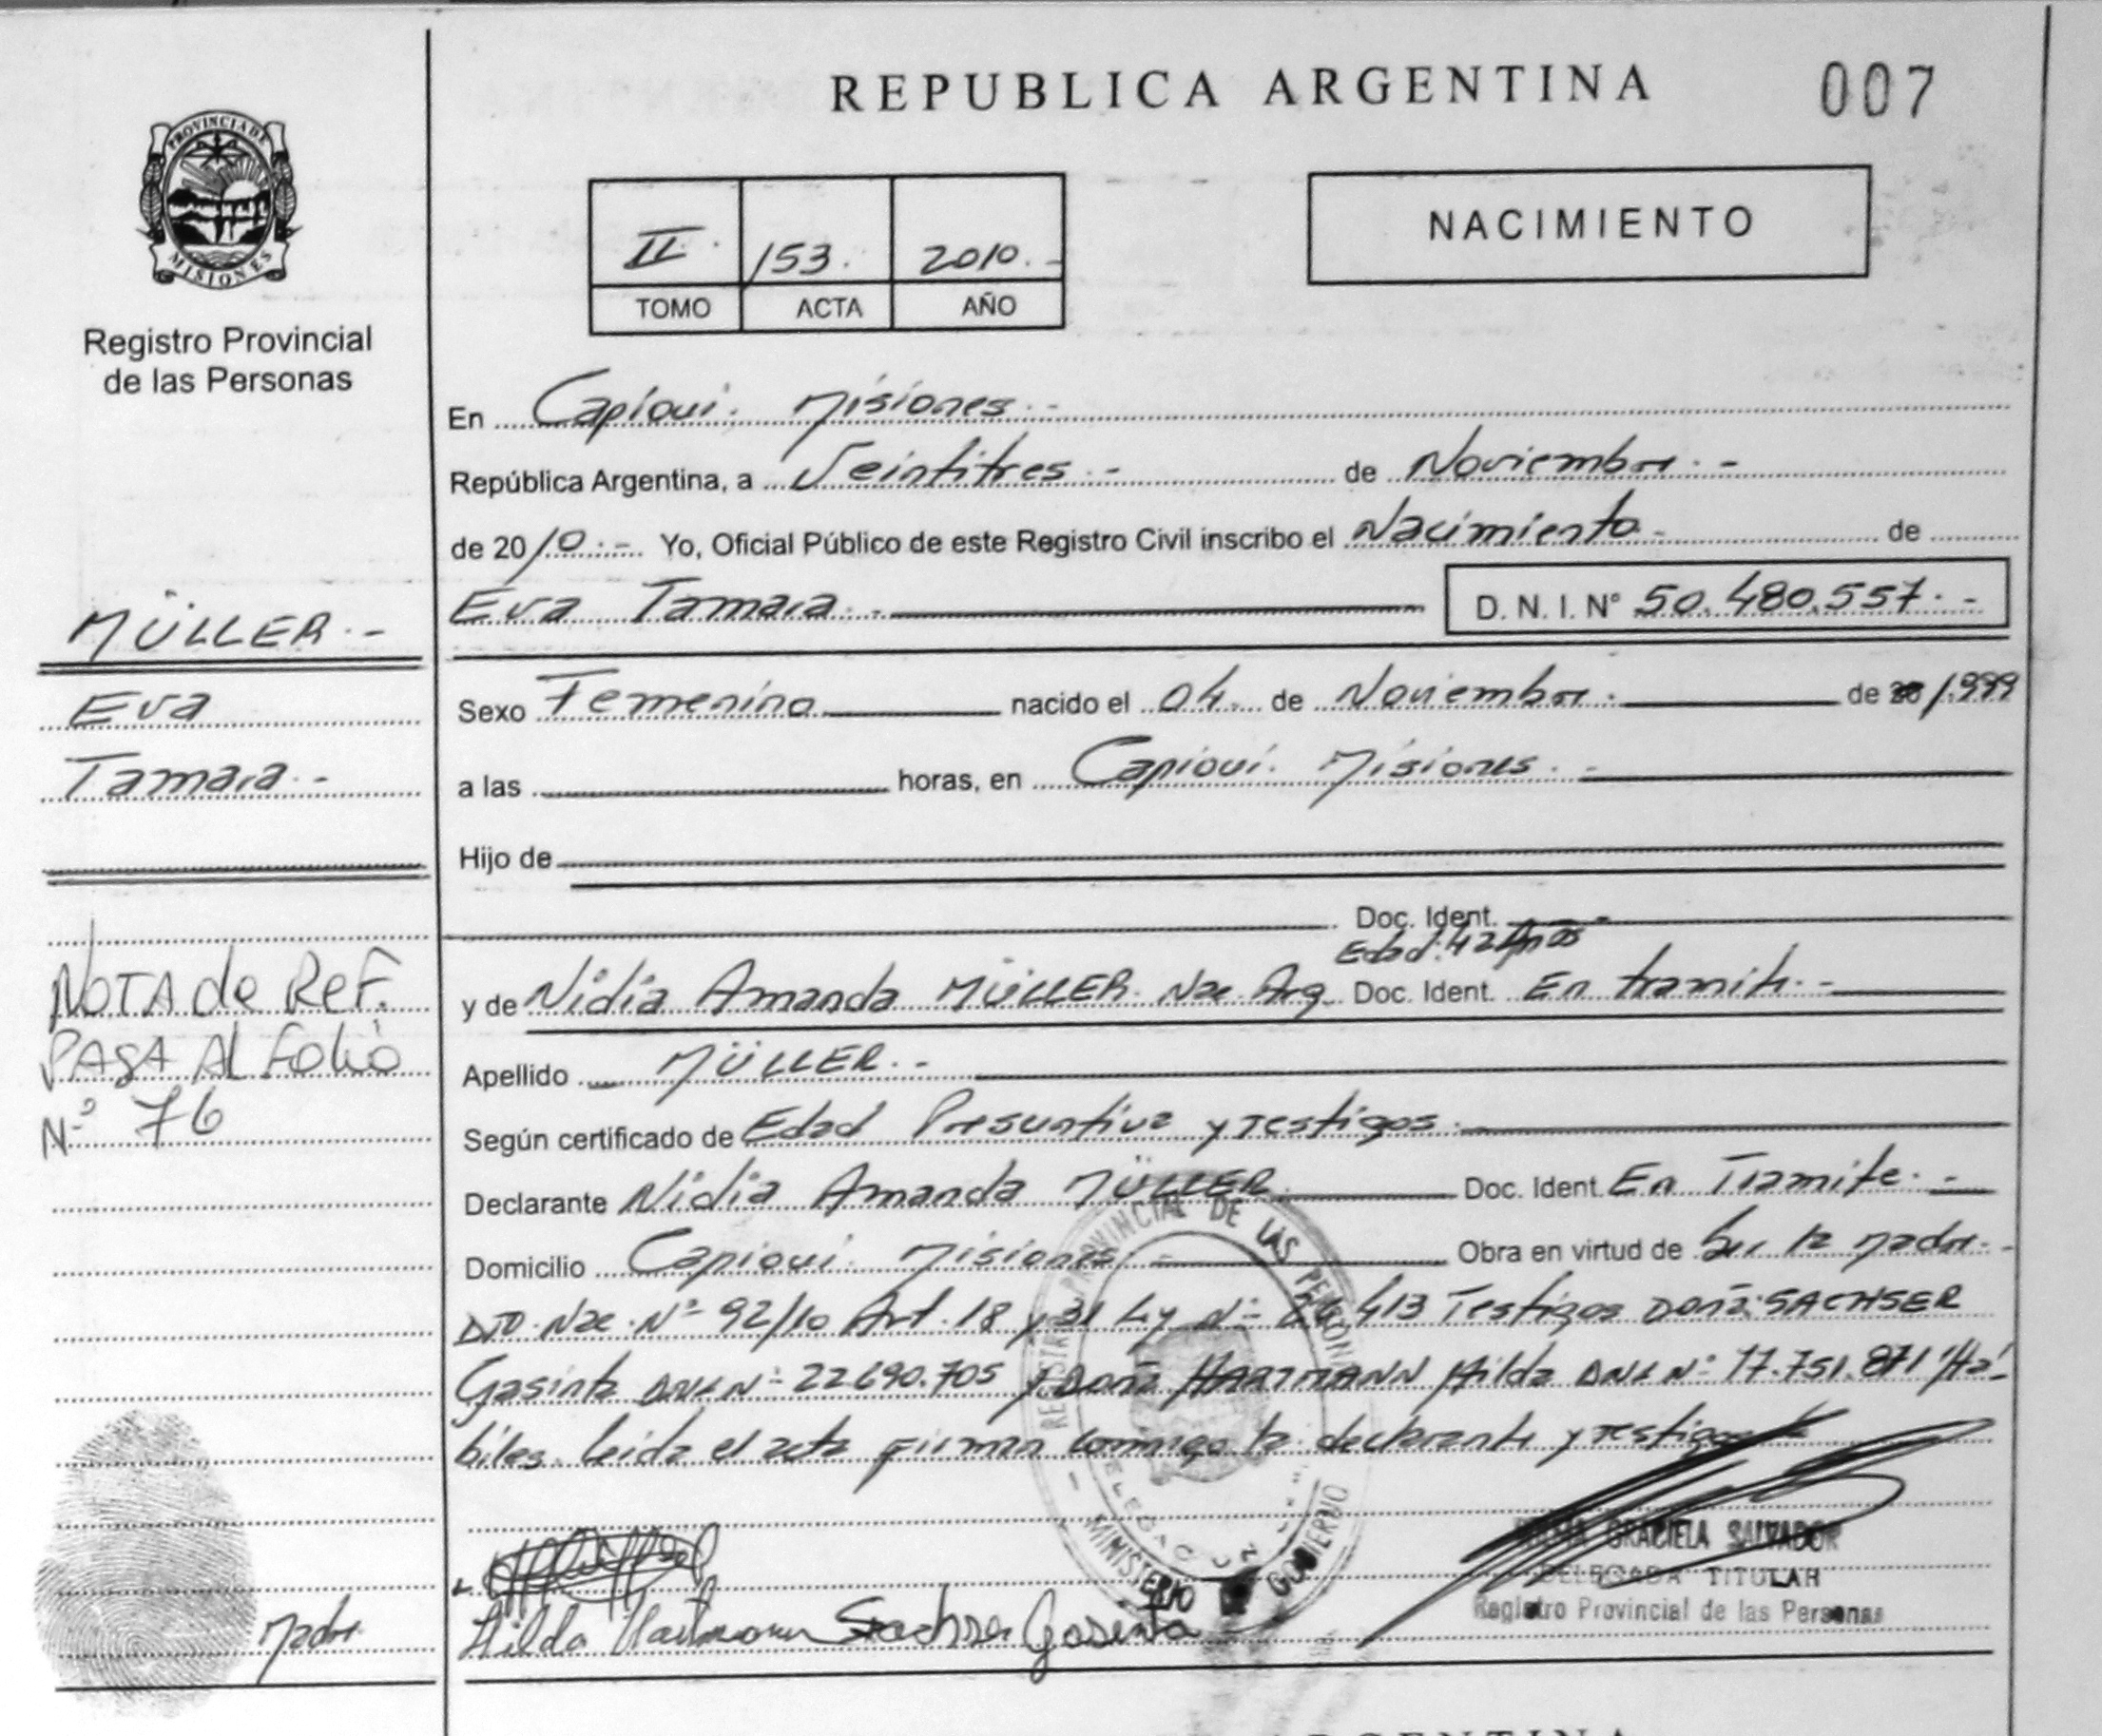 REPUBLICA ARGENTINA
007
PROVINCIA DE
MISIONES
Registro Provincial
de las Personas
II. 153. 2010.-
TOMO ACTA AÑO
NACIMIENTO
En Capioui. Misiones.-
República Argentina, a Veintitres.- de Noviembre.-
de 2010.- Yo, Oficial Público de este Registro Civil inscribo el Nacimiento.- de
Eva Tamara.- D. N. I. N° 50.480.557.-
MÜLLER.-
Eva
Tamara.-
Sexo Femenino nacido el 04. de Noviembre. de 1.999
a las horas, en Capioui. Misiones.-
Hijo de
Doc. Ident.
Edad: 42 Años
y de Nidia Amanda MÜLLER. Nac. Arg. Doc. Ident. En tramite.-
Apellido MÜLLER.-
Según certificado de Edad Presuntiva y Testigos.
Declarante Nidia Amanda MÜLLER. Doc. Ident. En Tramite.-
Domicilio Capioui. Misiones.- Obra en virtud de Ser la Madre.-
DTO. Nac. N° 92/10 Art. 18 y 31 Ley N° 26.413 Testigos Doña: SACHSER
Gasinta DNI N° 22.690.705 y Doña HARTMANN Hilda DNI N° 17.751.871 "Há-
biles. Leida el acta firman conmigo la declarante y testigos
NOTA de REF.
PASA AL Folio
N° 76
REGISTRO PROVINCIAL DE LAS PERSONAS
MINISTERIO DE GOBIERNO
Madre
Hilda Hartmann Sachser Gasinta
GRACIELA SALVADOR
DELEGADA TITULAR
Registro Provincial de las Personas